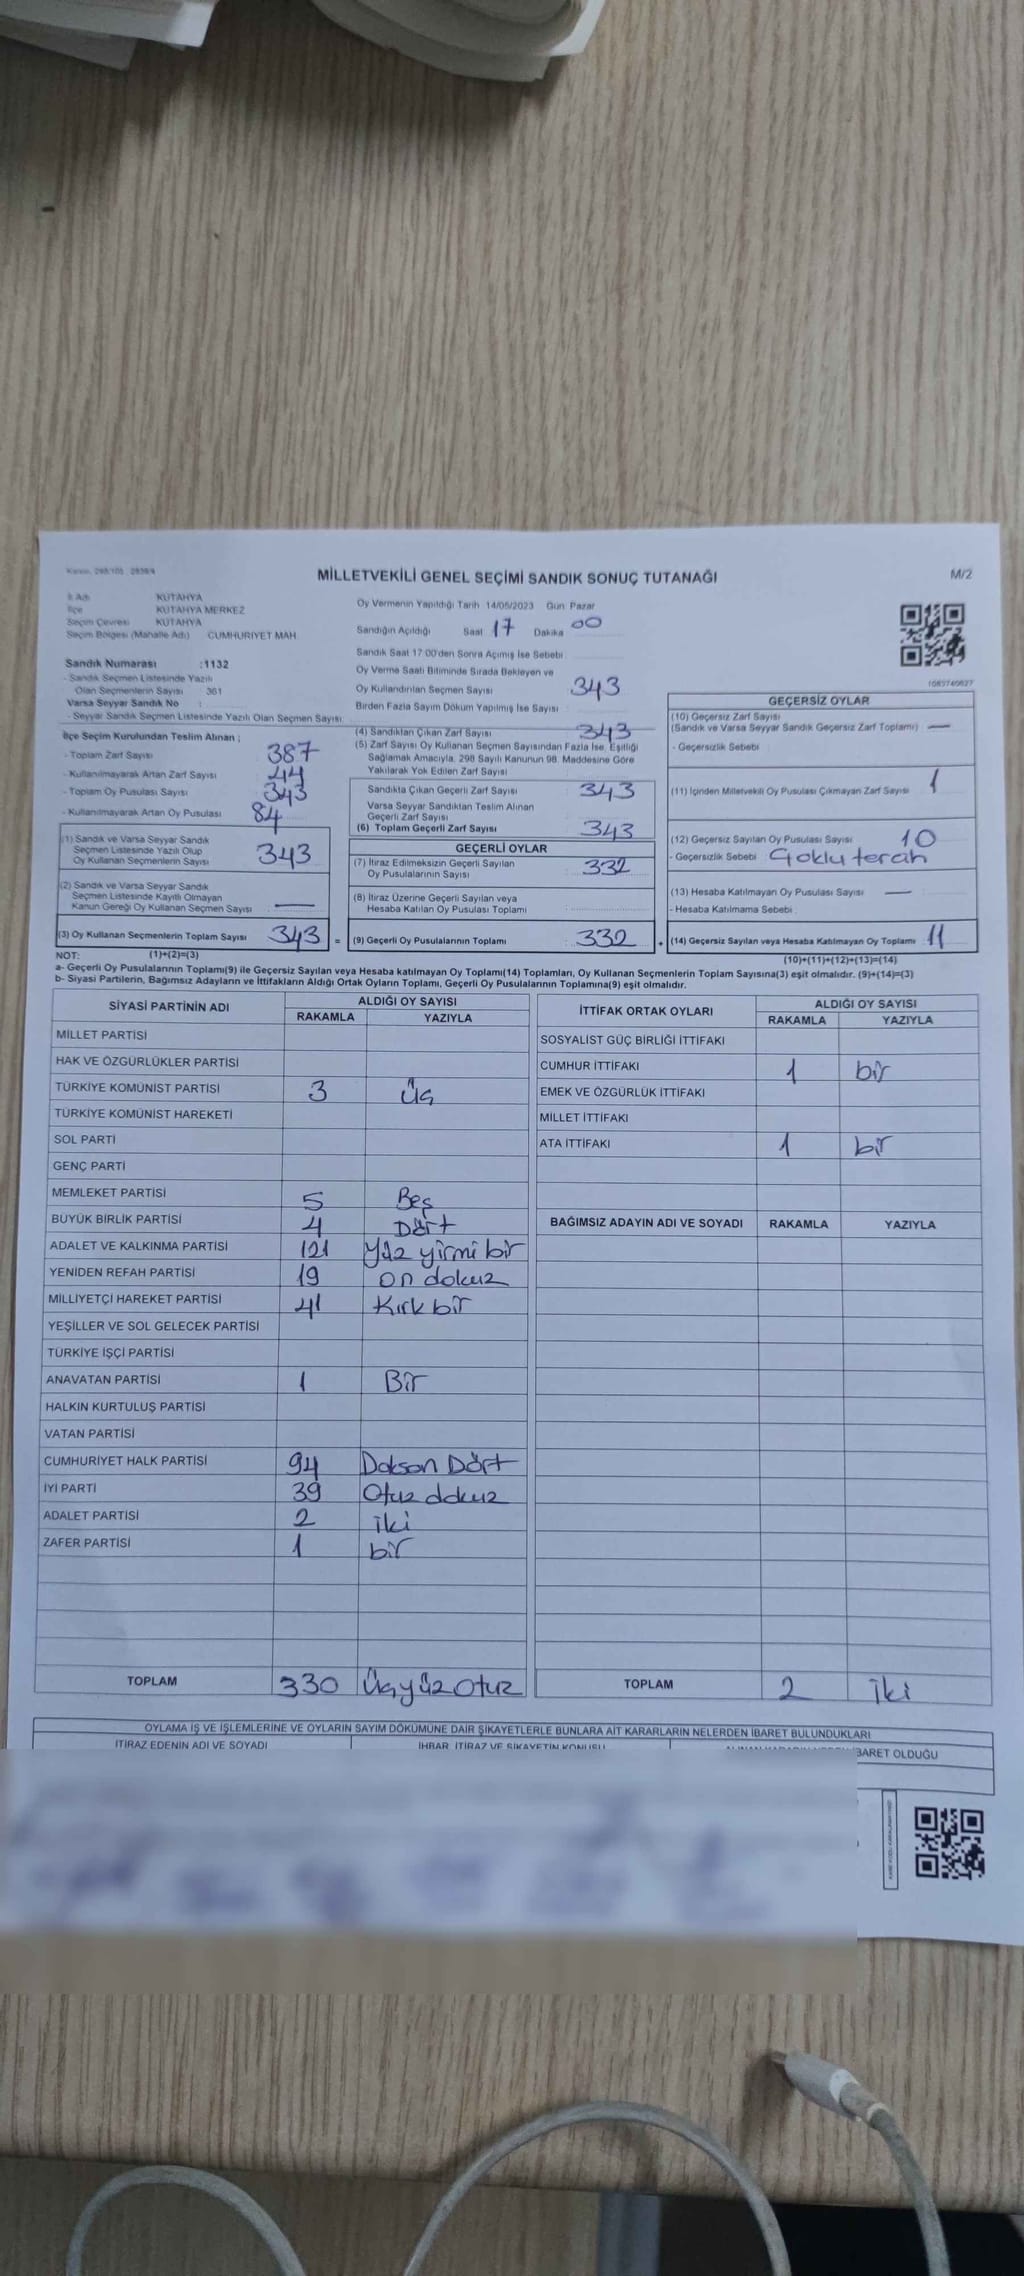 Kanun, 298/105 2839/4
MİLLETVEKİLİ GENEL SEÇİMİ SANDIK SONUÇ TUTANAĞI
M/2
İl Adı KÜTAHYA
İlçe KÜTAHYA MERKEZ
Seçim Çevresi KÜTAHYA
Seçim Bölgesi (Mahalle Adı) CUMHURİYET MAH.
Sandık Numarası :1132
- Sandık Seçmen Listesinde Yazılı
Olan Seçmenlerin Sayısı : 361
Varsa Seyyar Sandık No :
- Seyyar Sandık Seçmen Listesinde Yazılı Olan Seçmen Sayısı
İlçe Seçim Kurulundan Teslim Alınan ;
- Toplam Zarf Sayısı 387
- Kullanılmayarak Artan Zarf Sayısı 44
- Toplam Oy Pusulası Sayısı 343
- Kullanılmayarak Artan Oy Pusulası 84
(1) Sandık ve Varsa Seyyar Sandık
Seçmen Listesinde Yazılı Olup
Oy Kullanan Seçmenlerin Sayısı 343
(2) Sandık ve Varsa Seyyar Sandık
Seçmen Listesinde Kayıtlı Olmayan
Kanun Gereği Oy Kullanan Seçmen Sayısı —
(3) Oy Kullanan Seçmenlerin Toplam Sayısı 343 =
Oy Vermenin Yapıldığı Tarih 14/05/2023 Gün Pazar
Sandığın Açıldığı Saat 17 Dakika 00
Sandık Saat 17:00'den Sonra Açımış İse Sebebi
Oy Verme Saati Bitiminde Sırada Bekleyen ve
Oy Kullandırılan Seçmen Sayısı 343
Birden Fazla Sayım Döküm Yapılmış İse Sayısı :
(4) Sandıktan Çıkan Zarf Sayısı 343
(5) Zarf Sayısı Oy Kullanan Seçmen Sayısından Fazla İse, Eşitliği
Sağlamak Amacıyla, 298 Sayılı Kanunun 98. Maddesine Göre
Yakılarak Yok Edilen Zarf Sayısı
Sandıkta Çıkan Geçerli Zarf Sayısı 343
Varsa Seyyar Sandıktan Teslim Alınan
Geçerli Zarf Sayısı
(6) Toplam Geçerli Zarf Sayısı 343
GEÇERLİ OYLAR
(7) İtiraz Edilmeksizin Geçerli Sayılan
Oy Pusulalarının Sayısı 332
(8) İtiraz Üzerine Geçerli Sayılan veya
Hesaba Katılan Oy Pusulası Toplamı
(9) Geçerli Oy Pusulalarının Toplamı : 332 +
1085749627
GEÇERSİZ OYLAR
(10) Geçersiz Zarf Sayısı
(Sandık ve Varsa Seyyar Sandık Geçersiz Zarf Toplamı) —
- Geçersizlik Sebebi
(11) İçinden Milletvekili Oy Pusulası Çıkmayan Zarf Sayısı 1
(12) Geçersiz Sayılan Oy Pusulası Sayısı 10
- Geçersizlik Sebebi Çoklu tercih
(13) Hesaba Katılmayan Oy Pusulası Sayısı —
- Hesaba Katılmama Sebebi :
(14) Geçersiz Sayılan veya Hesaba Katılmayan Oy Toplamı 11
NOT: (1)+(2)=(3)
(10)+(11)+(12)+(13)=(14)
a- Geçerli Oy Pusulalarının Toplamı(9) ile Geçersiz Sayılan veya Hesaba katılmayan Oy Toplamı(14) Toplamları, Oy Kullanan Seçmenlerin Toplam Sayısına(3) eşit olmalıdır. (9)+(14)=(3)
b- Siyasi Partilerin, Bağımsız Adayların ve İttifakların Aldığı Ortak Oyların Toplamı, Geçerli Oy Pusulalarının Toplamına(9) eşit olmalıdır.
SİYASİ PARTİNİN ADI ALDIĞI OY SAYISI
RAKAMLA YAZIYLA
MİLLET PARTİSİ
HAK VE ÖZGÜRLÜKLER PARTİSİ
TÜRKİYE KOMÜNİST PARTİSİ 3 Üç
TÜRKİYE KOMÜNİST HAREKETİ
SOL PARTİ
GENÇ PARTİ
MEMLEKET PARTİSİ 5 Beş
BÜYÜK BİRLİK PARTİSİ 4 Dört
ADALET VE KALKINMA PARTİSİ 121 Yüz yirmi bir
YENİDEN REFAH PARTİSİ 19 on dokuz
MİLLİYETÇİ HAREKET PARTİSİ 41 Kırk bir
YEŞİLLER VE SOL GELECEK PARTİSİ
TÜRKİYE İŞÇİ PARTİSİ
ANAVATAN PARTİSİ 1 Bir
HALKIN KURTULUŞ PARTİSİ
VATAN PARTİSİ
CUMHURİYET HALK PARTİSİ 94 Doksan Dört
İYİ PARTİ 39 Otuz dokuz
ADALET PARTİSİ 2 iki
ZAFER PARTİSİ 1 bir
TOPLAM 330 Üçyüz Otuz
İTTİFAK ORTAK OYLARI ALDIĞI OY SAYISI
RAKAMLA YAZIYLA
SOSYALİST GÜÇ BİRLİĞİ İTTİFAKI
CUMHUR İTTİFAKI 1 bir
EMEK VE ÖZGÜRLÜK İTTİFAKI
MİLLET İTTİFAKI
ATA İTTİFAKI 1 bir
BAĞIMSIZ ADAYIN ADI VE SOYADI RAKAMLA YAZIYLA
TOPLAM 2 iki
OYLAMA İŞ VE İŞLEMLERİNE VE OYLARIN SAYIM DÖKÜMÜNE DAİR ŞİKAYETLERLE BUNLARA AİT KARARLARIN NELERDEN İBARET BULUNDUKLARI
İTİRAZ EDENİN ADI VE SOYADI İHBAR, İTİRAZ VE ŞİKAYETİN KONUSU İBARET OLDUĞU